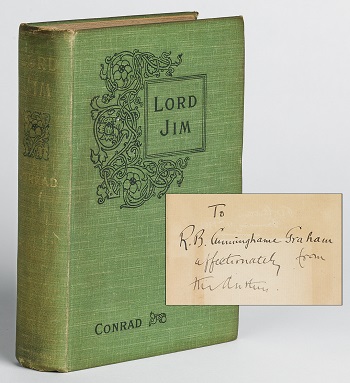 LORD
JIM
CONRAD
LORD
JIM
CONRAD
To
R. B. Cunninghame Graham
affectionately from
the Author.